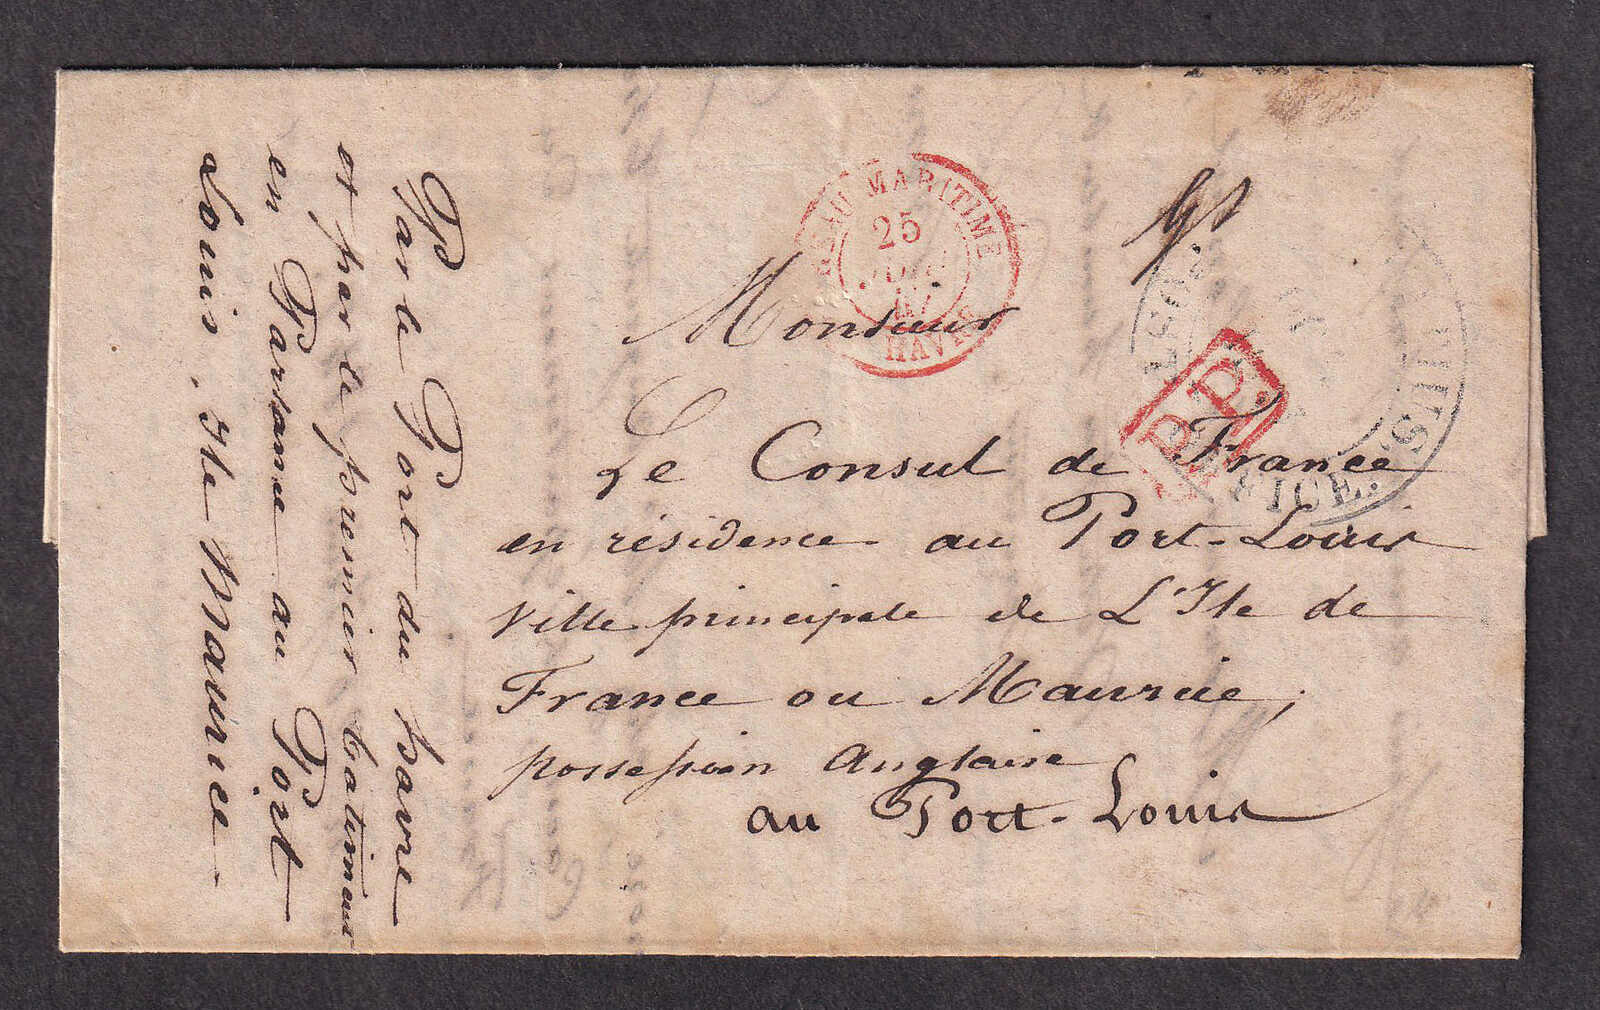 Par le Port du havre
et par le premier batiment
en Partance au Port
Louis, Ile Maurice
MARITIME
25
JUIN
47
HAVRE
P.P.
Monsieur
Le Consul de France
en résidence au Port-Louis
Ville principale de L'Ile de
France ou Maurice,
possession Anglaise
au Port-Louis